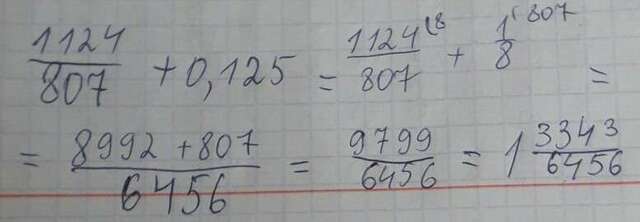 1124/807 + 0,125 = 1124/807 (8 + 1/8 (807 =
= 8992 + 807/6456 = 9799/6456 = 1 3343/6456